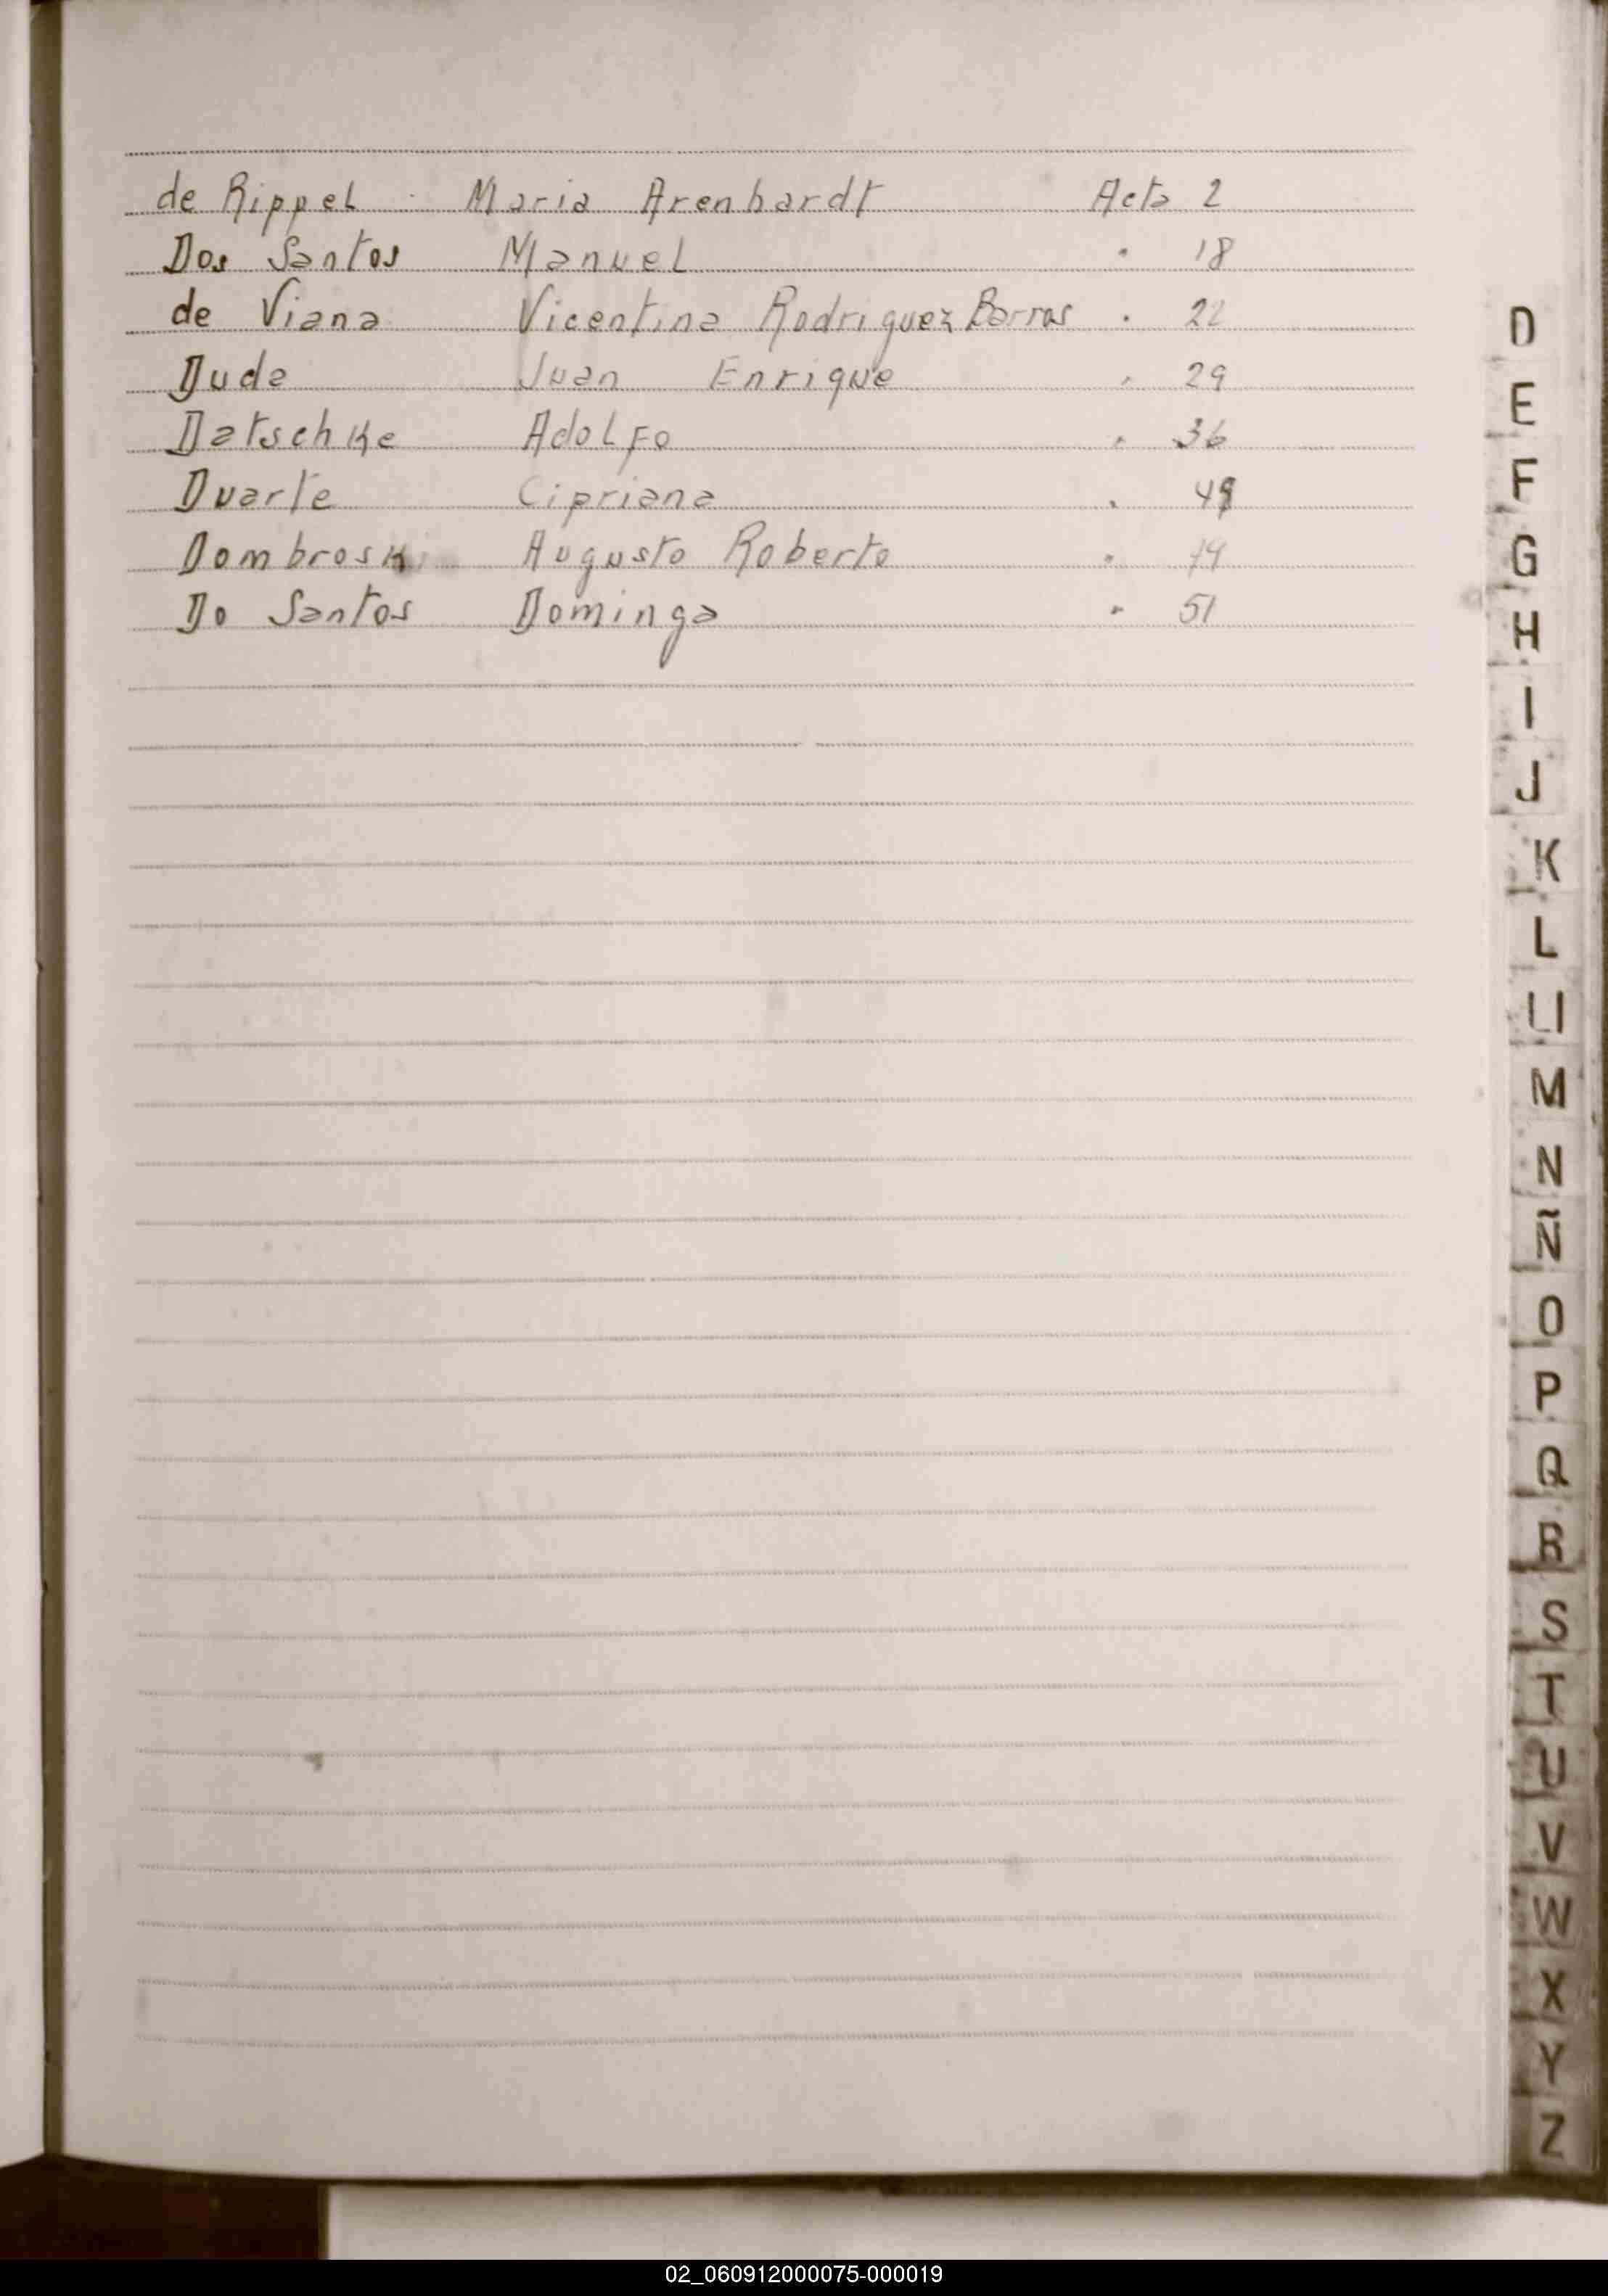 de Rippel Maria Arenhardt Acta 2
Dos Santos Manuel " 18
de Viana Vicentina Rodriguez Barros " 22
Duda Juan Enrique " 29
Datschke Adolfo " 36
Duarte Cipriana "
Dombroski Augusto Roberto "
Do Santos Dominga " 51
D
E
F
G
H
I
J
K
L
LL
M
N
Ñ
O
P
Q
R
S
T
U
V
W
X
Y
Z
02_060912000075-000019